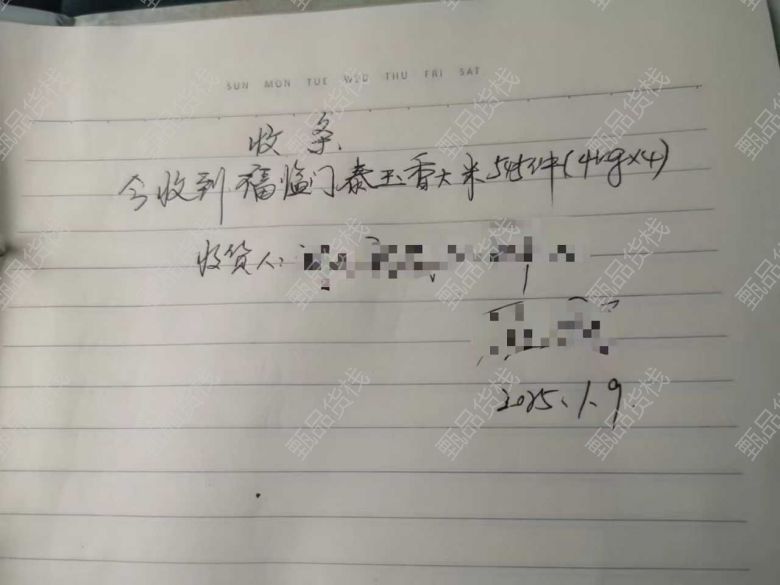 SUN MON TUE WED THU FRI SAT
收条
今收到福临门泰玉香大米545件(4kg×4)
收货人:
2025.1.9.
甄品货栈